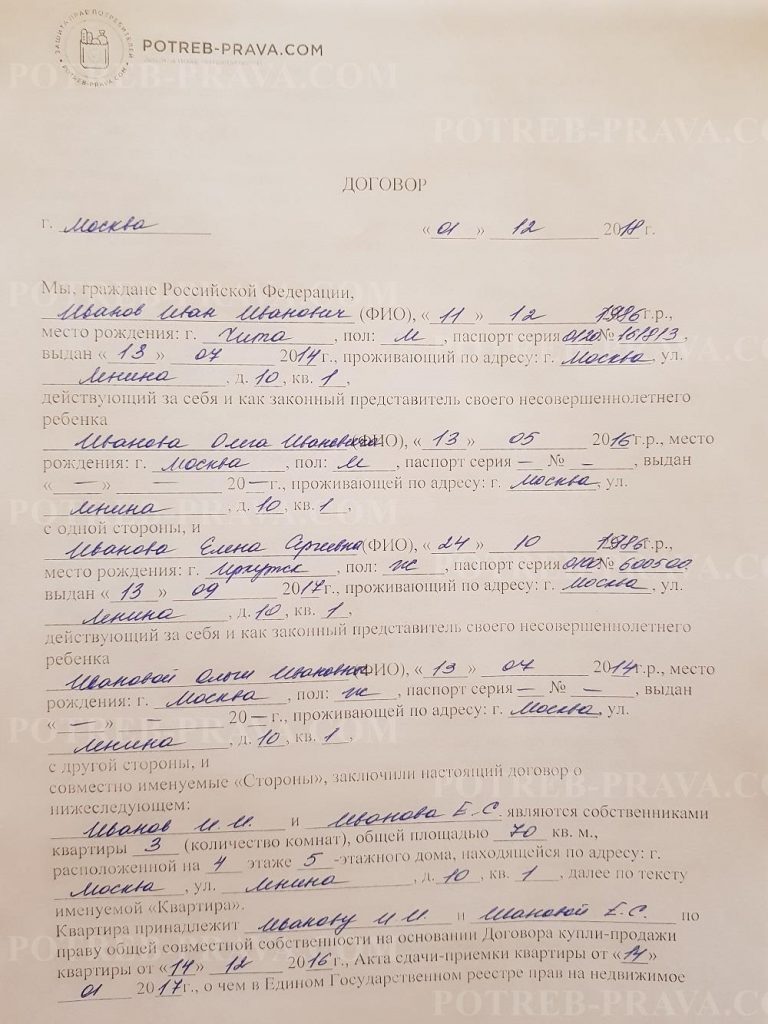 ЗАЩИТА ПРАВ ПОТРЕБИТЕЛЕЙ
• POTREB-PRAVA.COM •
POTREB-PRAVA.COM
POTREB-PRAVA.COM
POTREB-PRAVA.COM
ДОГОВОР
г. Москва «01» 12 2018 г.
Мы, граждане Российской Федерации,
Иванов Иван Иванович (ФИО), « 11 » 12 1986 г.р.,
место рождения: г. Чита, пол: М, паспорт серия № 161813,
выдан « 13 » 07 2014 г., проживающий по адресу: г. Москва, ул.
Ленина, д. 10, кв. 1,
действующий за себя и как законный представитель своего несовершеннолетнего
ребенка
Иванова Олега Ивановича (ФИО), « 13 » 05 2016 г.р., место
рождения: г. Москва, пол: М, паспорт серия — № —, выдан
« — » — 20 — г., проживающей по адресу: г. Москва, ул.
Ленина, д. 10, кв. 1,
с одной стороны, и
Иванова Елена Сергеевна (ФИО), « 24 » 10 1986 г.р.,
место рождения: г. Иркутск, пол: ж, паспорт серия № 600500,
выдан « 13 » 09 2017 г., проживающий по адресу: г. Москва, ул.
Ленина, д. 10, кв. 1,
действующий за себя и как законный представитель своего несовершеннолетнего
ребенка
Ивановой Ольги Ивановны (ФИО), « 13 » 07 2014 г.р., место
рождения: г. Москва, пол: ж, паспорт серия — № —, выдан
« — » — 20 — г., проживающей по адресу: г. Москва, ул.
Ленина, д. 10, кв. 1,
с другой стороны, и
совместно именуемые «Стороны», заключили настоящий договор о
нижеследующем:
Иванов И.И. и Иванова Е.С. являются собственниками
квартиры 3 (количество комнат), общей площадью 70 кв. м.,
расположенной на 4 этаже 5 -этажного дома, находящейся по адресу: г.
Москва, ул. Ленина, д. 10, кв. 1, далее по тексту
именуемой «Квартира».
Квартира принадлежит Иванову И.И. и Ивановой Е.С. по
праву общей совместной собственности на основании Договора купли-продажи
квартиры от «14» 12 2016 г., Акта сдачи-приемки квартиры от «14»
01 2017 г., о чем в Едином Государственном реестре прав на недвижимое